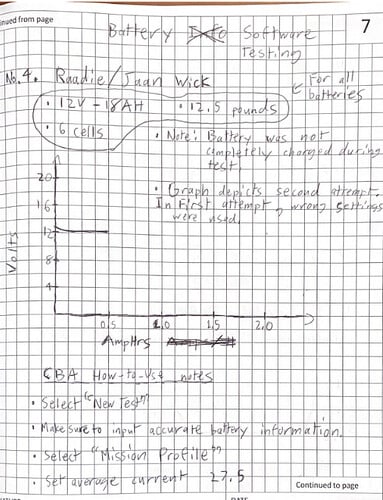 nued from page
7
Battery Info Software
Testing
No. 4. Raadie/Jaan Wick
For all
batteries
• 12V - 18AH • 12.5 pounds
• 6 cells
• Note: Battery was not
completely charged during
test.
• Graph depicts second attempt.
In First attempt, wrong settings
were used.
Volts
20
16
12
8
4
0.5 1.0 1.5 2.0
AmpHrs
CBA How-to-Use notes
• Select "New Test"
• Make sure to input accurate battery information.
• Select "Mission Profile"
• Set average current 27.5
Continued to page
DATE